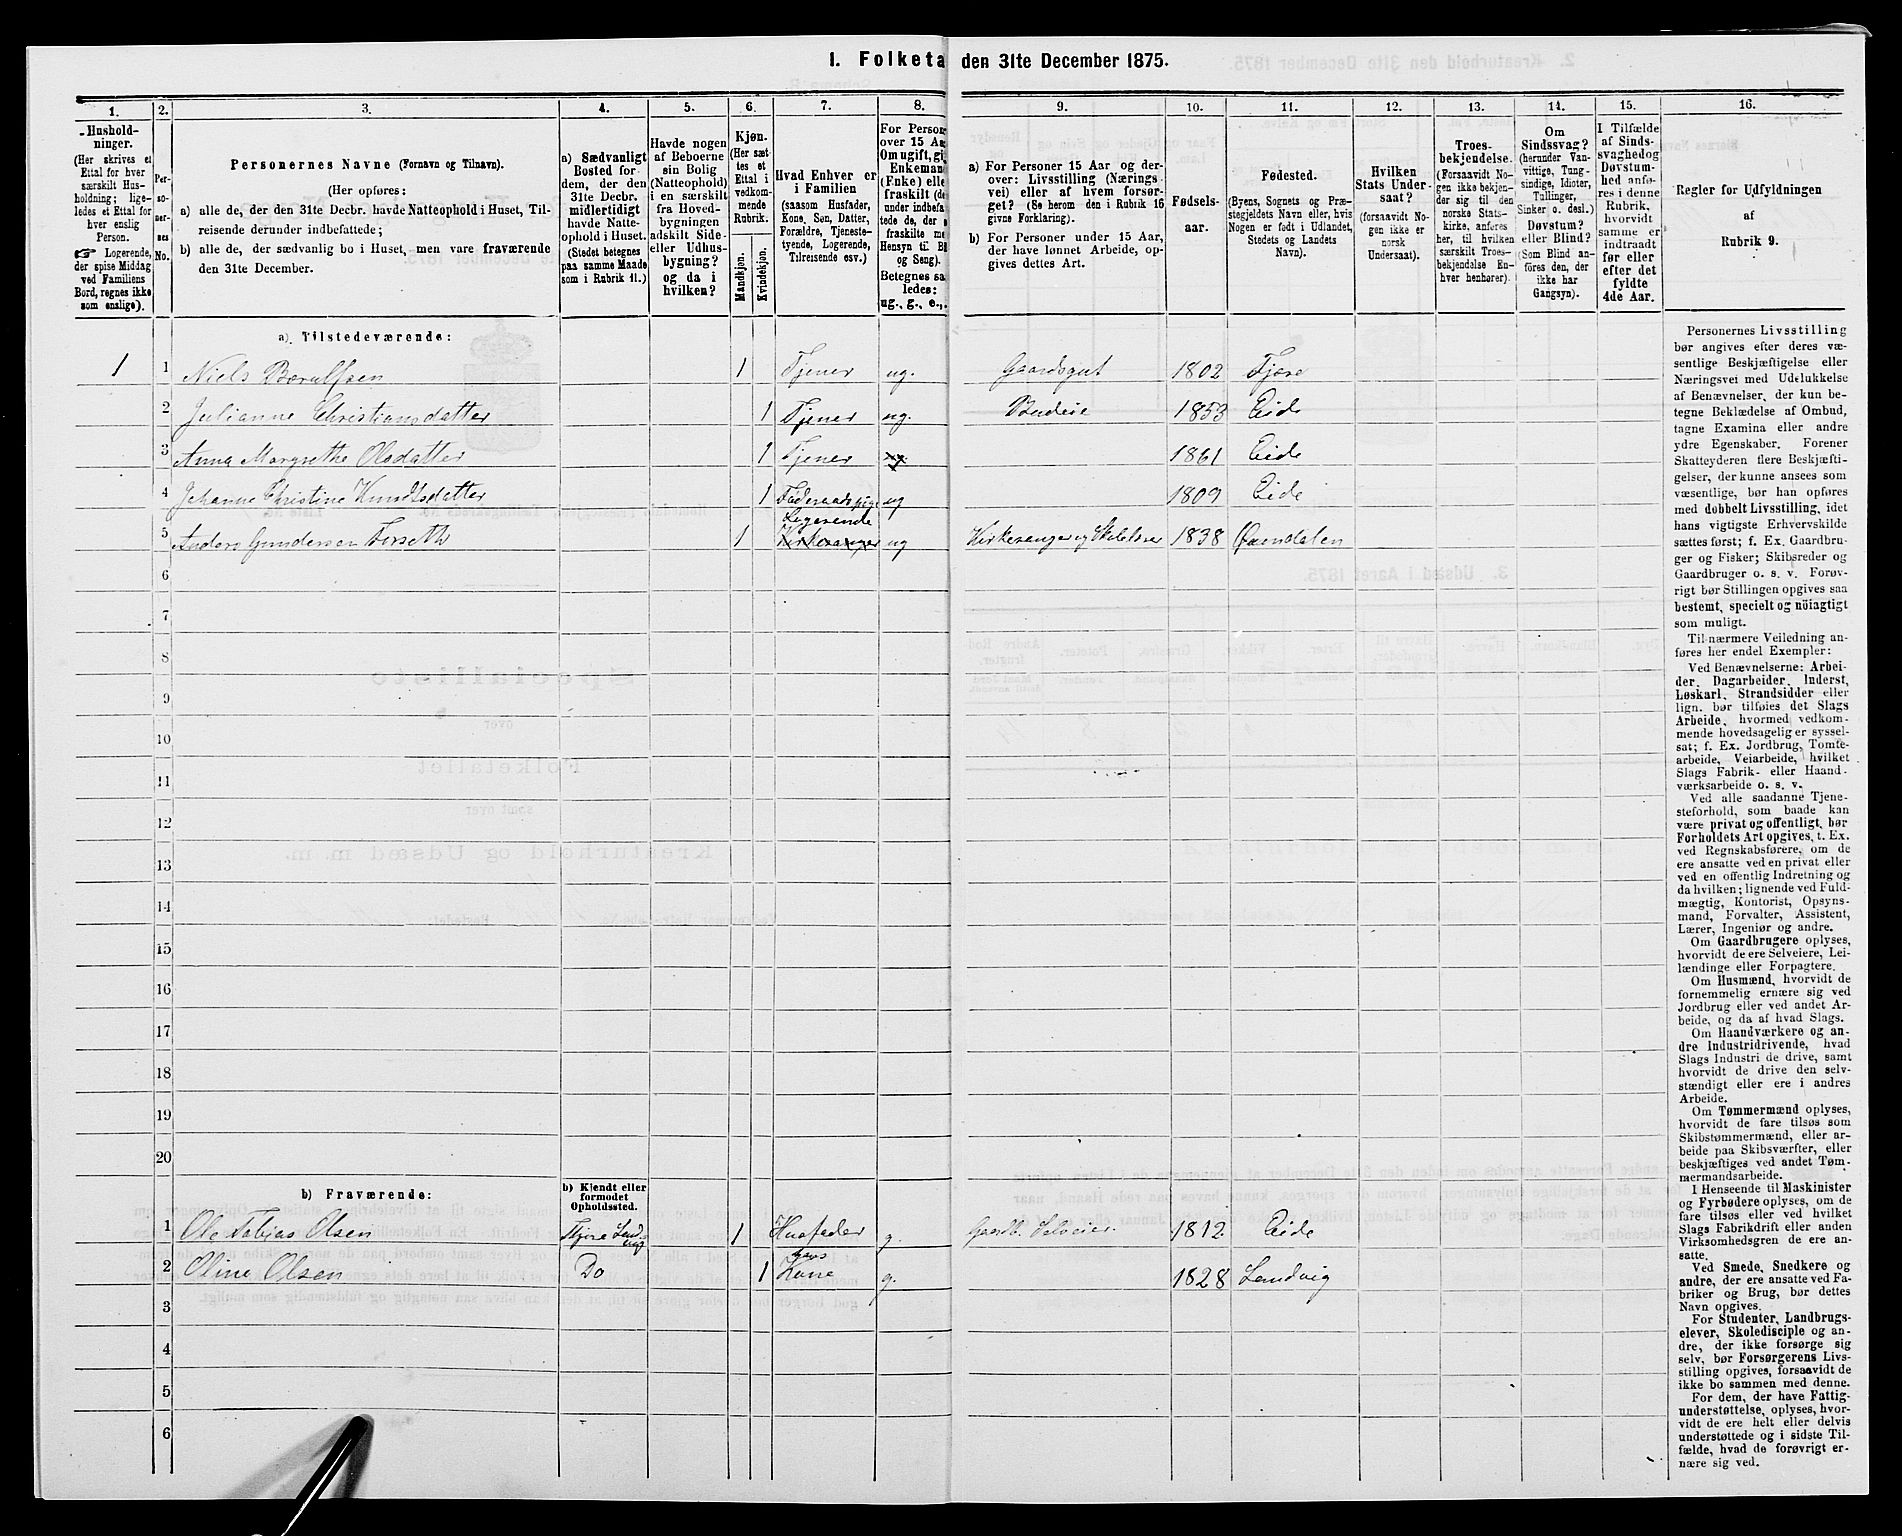 I. Folketa den 31te December 1875.
1. 2. 3. 4. 5. 6. 7. 8. 9. 10. 11. 12. 13. 14. 15. 16.
Hushold-
ninger.
(Her skrives et
Ettal for hver
særskilt Hus-
holdning; lige-
ledes et Ettal for
hver enslig
Person.
☞ Logerende,
der spise Middag
ved Familiens
Bord, regnes ikke
som enslige).
Per-
so-
ner-
nes
No.
Personernes Navne (Fornavn og Tilnavn).
(Her opføres:
a) alle de, der den 31te Decbr. havde Natteophold i Huset, Til-
reisende derunder indbefattede;
b) alle de, der sædvanlig bo i Huset, men vare fraværende
den 31te December.
a) Sædvanligt
Bosted for
dem, der den
31te Decbr.
midlertidigt
havde Natte-
ophold i Huset.
(Stedet betegnes
paa samme Maade
som i Rubrik 11.)
Havde nogen
af Beboerne
sin Bolig
(Natteophold)
i en særskilt
fra Hoved-
bygningen
adskilt Side-
eller Udhus-
bygning?
og da i
hvilken?
Kjøn.
(Her sæt-
tes et
Ettal i
vedkom-
mende
Rubrik.
Mandkjøn.
Kvindekjøn.
Hvad Enhver er
i Familien
(saasom Husfader,
Kone, Søn, Datter,
Forældre, Tjeneste-
tyende, Logerende,
Tilreisende osv.)
For Person
over 15 Aa
Om ugift, gi
Enkeman
(Enke) elle
fraskilt (de
under indbefa
tede de, der e
fraskilte me
Hensyn til B
og Seng).
Betegnes sa
ledes:
ug., g., e.,
a) For Personer 15 Aar og der-
over: Livsstilling (Nærings
vei) eller af hvem forsør-
get? (Se herom den i Rubrik 16
givne Forklaring).
b) For Personer under 15 Aar,
der have lønnet Arbeide, op-
gives dettes Art.
Fødsels-
aar.
Fødested.
(Byens, Sognets og Præ-
stegjeldets Navn eller, hvis
Nogen er født i Udlandet,
Stedets og Landets
Navn).
Hvilken
Stats Under-
saat?
(forsaavidt No-
gen ikke er
norsk
Undersaat).
Troes-
bekjendelse.
(Forsaavidt No-
gen ikke bekjen-
der sig til den
norske Stats-
kirke, anføres
her, til hvilken
særskilt Troes-
bekjendelse En-
hver henhører).
Om
Sindssvag?
(herunder Van-
vittige, Tung-
sindige, Idioter,
Tullinger,
Sinker o. desl.)
Døvstum?
eller Blind?
(Som Blind an-
føres den, der
ikke har
Gangsyn).
I Tilfælde
af Sinds-
svaghed og
Døvstum-
hed anfø-
res i denne
Rubrik,
hvorvidt
samme er
indtraadt
før eller
efter det
fyldte
4de Aar.
Regler for Udfyldningen
af
Rubrik 9.
a) Tilstedeværende:
1 1 Niels Børulfsen 1 Tjener ug. Gaardsgut 1802 Fjære
2 Julianne Christiansdatter 1 Tjener ug. Budeie 1853 Eide
3 Anna Margrethe Olsdatter 1 Tjener 1861 Eide
4 Johanne Christine Knudtsdatter 1 Føderaadspige ug 1809 Eide
Logerende
5 Anders Gundersen Forseth 1 Kirkesanger ug Kirkesanger og Skolelærer 1838 Øxendalen
6
7
8
9
10
11
12
13
14
15
16
17
18
19
20
b) Fraværende:
b) Kjendt eller
formodet
Opholdssted.
1 Ole Tobias Olsen 1 Husfader g. Gaardb. Selveier 1812 Eide
hans
2 Oline Olsen Do 1 Kone g. 1828 Landvig
3
4
5
6
Personernes Livsstilling
bør angives efter deres væ-
sentlige Beskjæftigelse eller
Næringsvei med Udelukkelse
af Benævnelser, der kun be-
tegne Beklædelse af Ombud,
tagne Examina eller andre
ydre Egenskaber. Forener
Skatteyderen flere Beskjæfti-
gelser, der kunne ansees som
væsentlige, bør han opføres
med dobbelt Livsstilling, idet
hans vigtigste Erhvervskilde
sættes først; f. Ex. Gaardbru-
ger og Fisker; Skibsreder og
Gaardbruger o. s. v. Forøv-
rigt bør Stillingen opgives saa
bestemt, specielt og nöiagtigt
som muligt.
Til nærmere Veiledning an-
føres her endel Exempler:
Ved Benævnelserne: Arbei-
der, Dagarbeider, Inderst,
Løskarl, Strandsidder eller
lign. bør tilføies det Slags
Arbeide, hvormed vedkom-
mende hovedsagelig er syssel-
sat; f. Ex. Jordbrug, Tomte-
arbeide, Veiarbeide, hvilket
Slags Fabrik- eller Haand-
værksarbeide o. s. v.
Ved alle saadanne Tjene-
steforhold, som baade kan
være privat og offentligt, bør
Forholdets Art opgives, t. Ex.
ved Regnskabsførere, om de
ere ansatte ved en privat eller
ved en offentlig Indretning og
da hvilken; lignende ved Fuld-
mægtig, Kontorist, Opsyns-
mand, Forvalter, Assistent,
Lærer, Ingeniør og andre.
Om Gaardbrugere oplyses,
hvorvidt de ere Selveiere, Lei-
lændinge eller Forpagtere.
Om Husmænd, hvorvidt de
fornemmelig ernære sig ved
Jordbrug eller ved andet Ar-
beide, og da af hvad Slags.
Om Haandværkere og an-
dre Industridrivende, hvad
Slags Industri de drive, samt
hvorvidt de drive den selv-
stændigt eller ere i andres
Arbeide.
Om Tømmermænd oplyses,
hvorvidt de fare tilsøs som
Skibstømmermænd, eller ar-
beide paa Skibsværfter, eller
beskjæftiges ved andet Tøm-
mermandsarbeide.
I Henseende til Maskinister
og Fyrbødere oplyses, om de
fare tilsøs eller ved hvilket
Slags Fabrikdrift eller anden
Virksomhedsgren de ere an-
satte.
Ved Smede, Snedkere og
andre, der ere ansatte ved Fa-
briker og Brug, bør dettes
Navn opgives.
For Studenter, Landbrugs-
elever, Skoledisciple og an-
dre, der ikke forsørge sig
selv, bør Forsørgerens Livs-
stilling opgives, forsaavidt de
ikke bo sammen med denne.
For dem, der have Fattig-
understøttelse, oplyses, hvor-
vidt de ere helt eller delvis
understøttede og i sidste Til-
fælde, hvad de forøvrigt er-
nære sig ved.